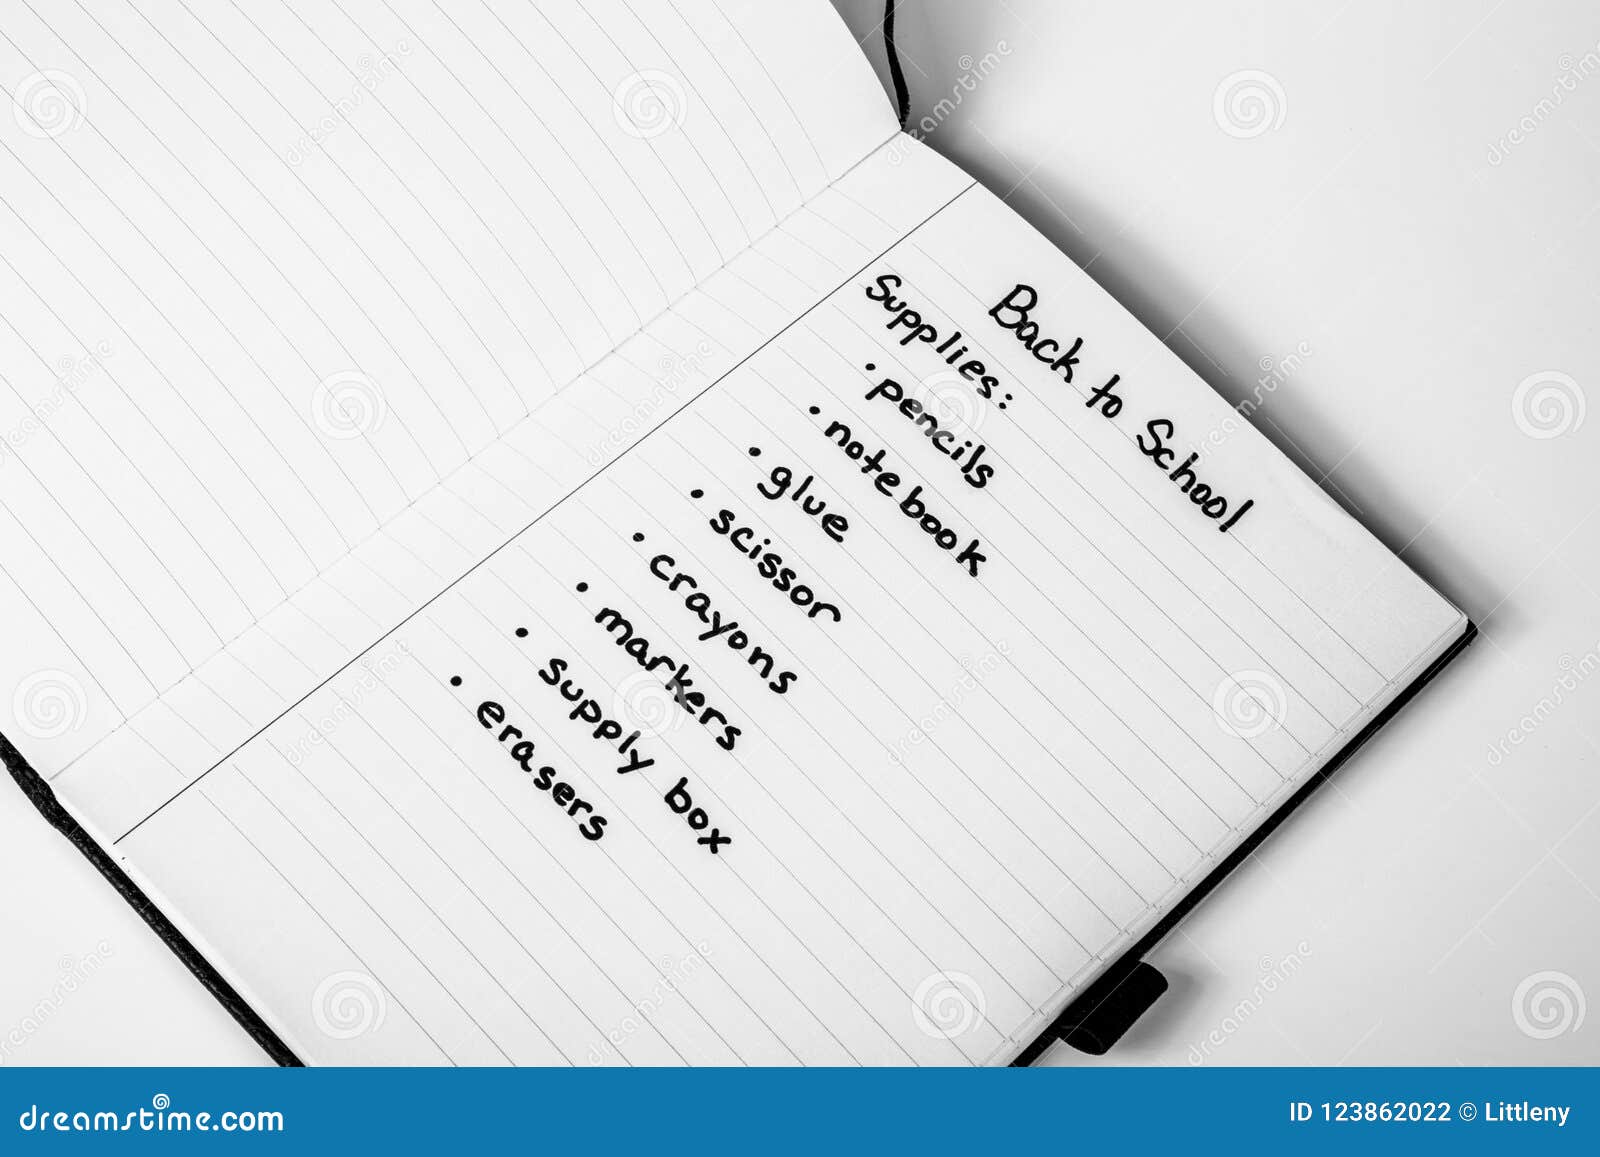 Back to School
Supplies:
• pencils
• notebook
• glue
• scissor
• crayons
• markers
• supply box
• erasers
dreamstime.com
ID 123862022 © Littleny